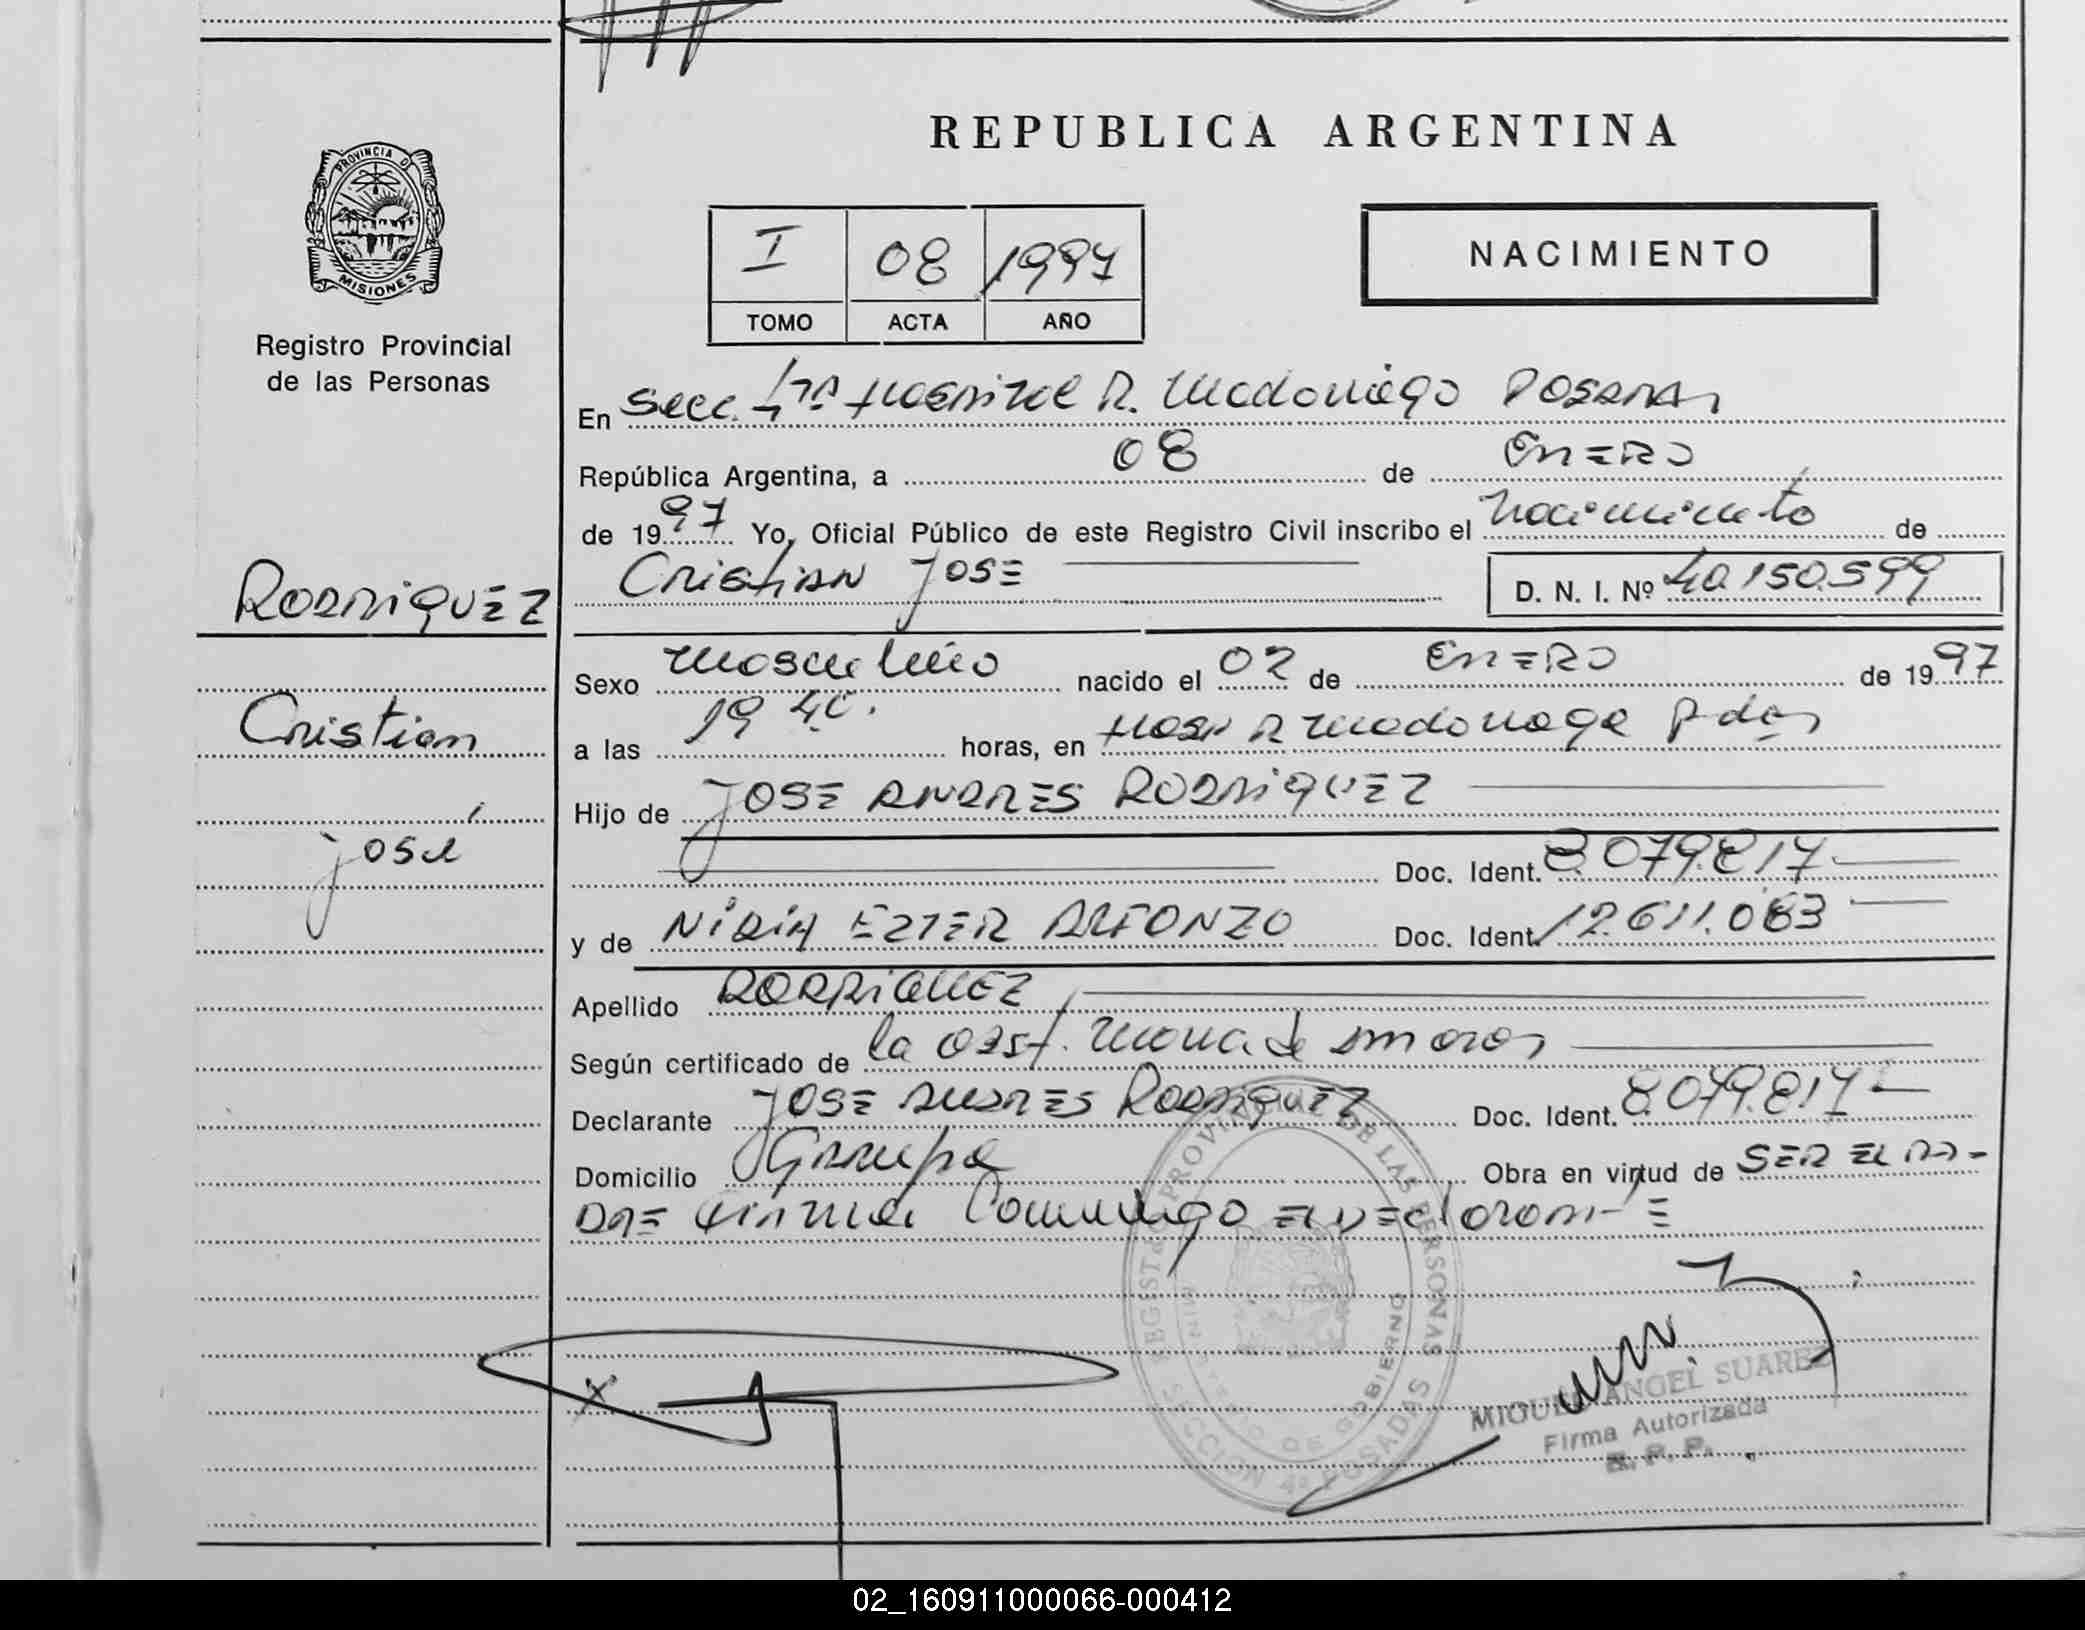 REPUBLICA ARGENTINA
PROVINCIA DE
MISIONES
Registro Provincial
de las Personas
I 08 1997
TOMO ACTA AÑO
NACIMIENTO
En Secc. 4ta Hospital R. Madariaga Posadas
República Argentina, a 08 de Enero
de 1997 Yo, Oficial Público de este Registro Civil inscribo el Nacimiento de
Cristian Jose D. N. I. Nº 40.150.599
Rodriguez
Sexo Masculino nacido el 02 de Enero de 1997
Cristian
a las 19 40. horas, en Hosp R Madariaga Pdas
José
Hijo de Jose Andres Rodriguez
Doc. Ident. 8.079.817
y de Nidia Ezter Alfonzo Doc. Ident. 12.611.083
Apellido Rodriguez
Según certificado de la Obst.
Declarante Jose Andres Rodriguez Doc. Ident. 8.079.817
Domicilio Garupa Obra en virtud de ser el pa-
dre firma Conmigo el declarante
REGISTRO PROVINCIAL DE LAS PERSONAS
MINISTERIO DE GOBIERNO
SECCION 4ª POSADAS
MIGUEL ANGEL SUAREZ
Firma Autorizada
R. P. P.
02_160911000066-000412